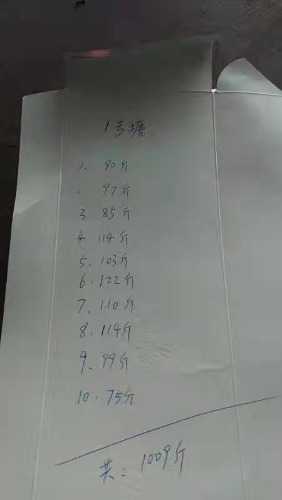 1号塘
1. 90斤
2. 97斤
3. 85斤
4. 114斤
5. 103斤
6. 122斤
7. 110斤
8. 114斤
9. 99斤
10. 75斤
共: 1009斤